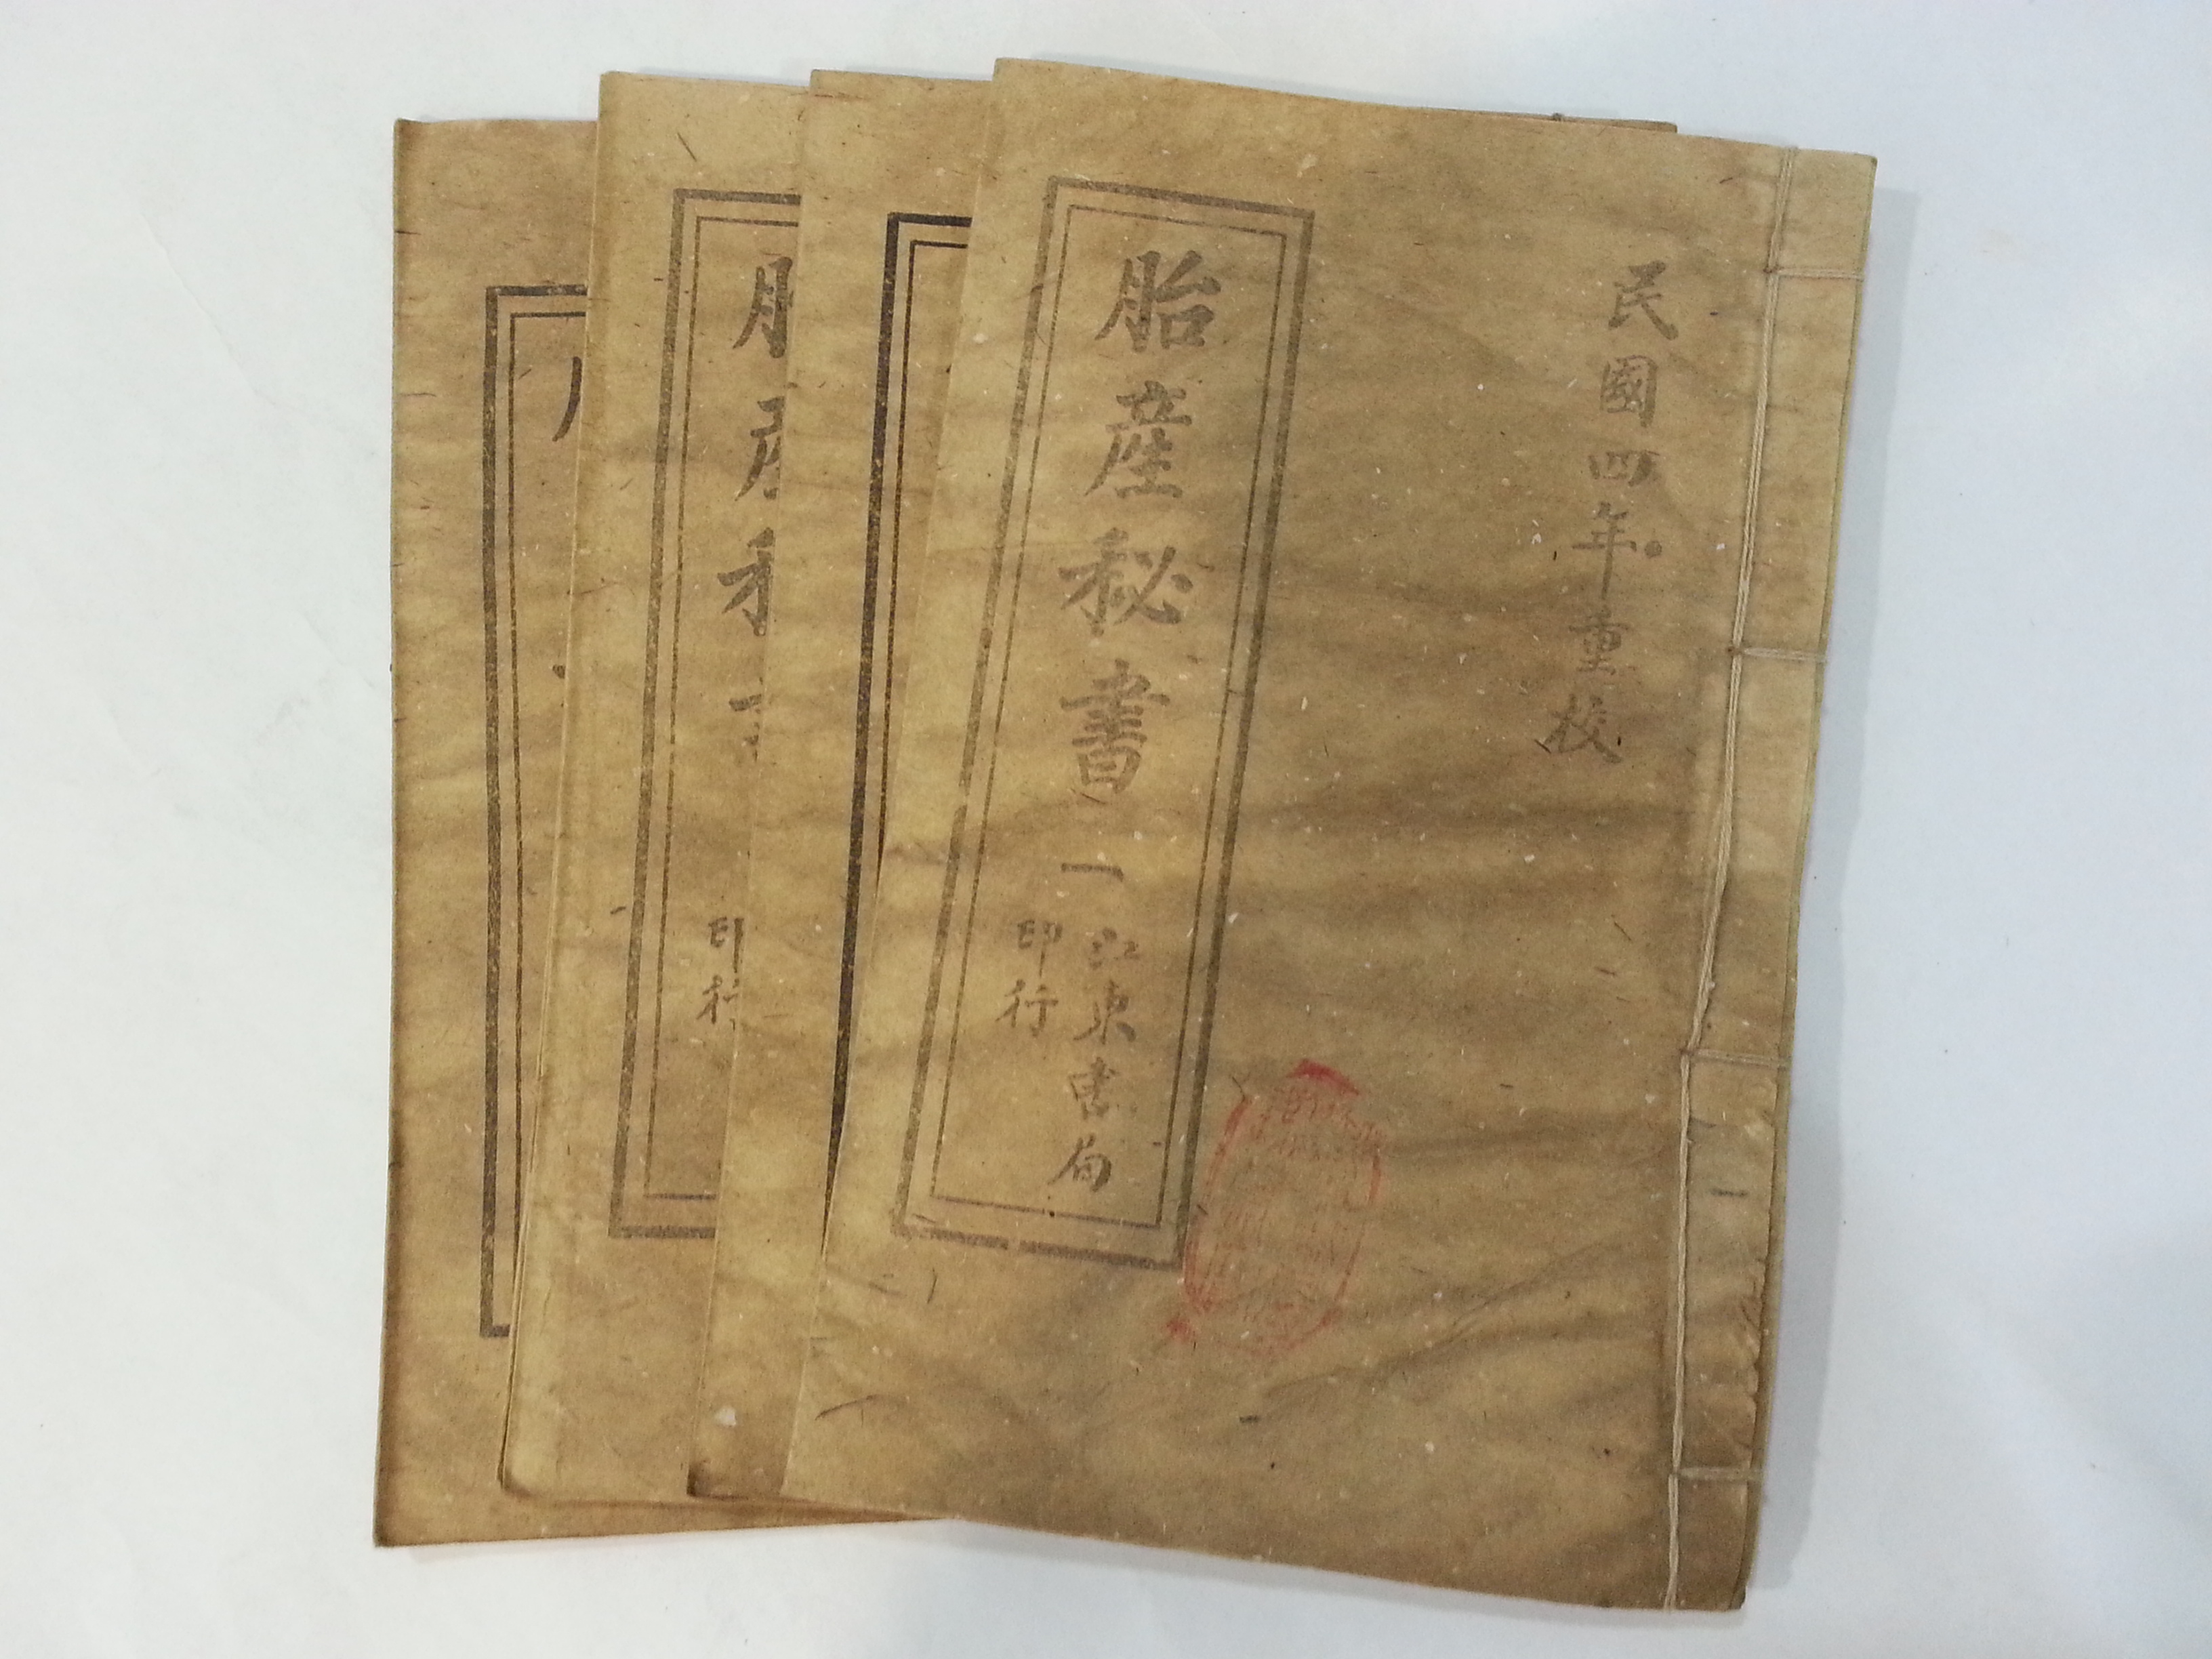 民國四年重校
胎產秘書一
江東書局
印行
一
印行